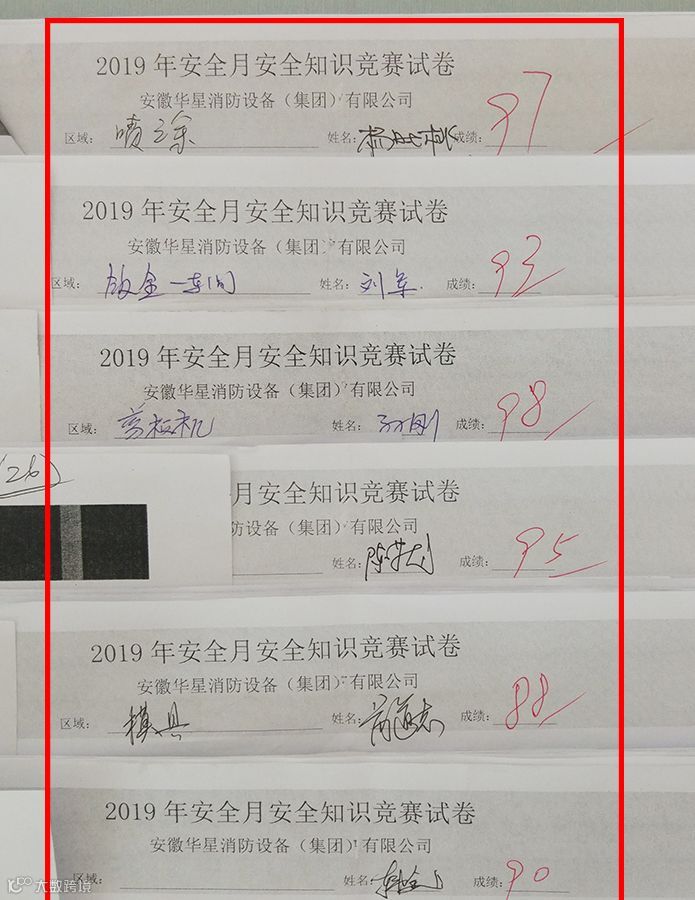 2019 年安全月安全知识竞赛试卷
安徽华星消防设备（集团）有限公司
区域： 喷涂 姓名： 成绩： 97
2019 年安全月安全知识竞赛试卷
安徽华星消防设备（集团）有限公司
区域： 钣金一车间 姓名： 刘军 成绩： 93
2019 年安全月安全知识竞赛试卷
安徽华星消防设备（集团）有限公司
区域： 姓名： 孙刚 成绩： 98
(26)
月安全知识竞赛试卷
防设备（集团）有限公司
姓名： 成绩： 95
2019 年安全月安全知识竞赛试卷
安徽华星消防设备（集团）有限公司
区域： 模具 姓名： 成绩： 88
2019 年安全月安全知识竞赛试卷
安徽华星消防设备（集团）有限公司
区域： 姓名： 成绩： 90
大数跨境